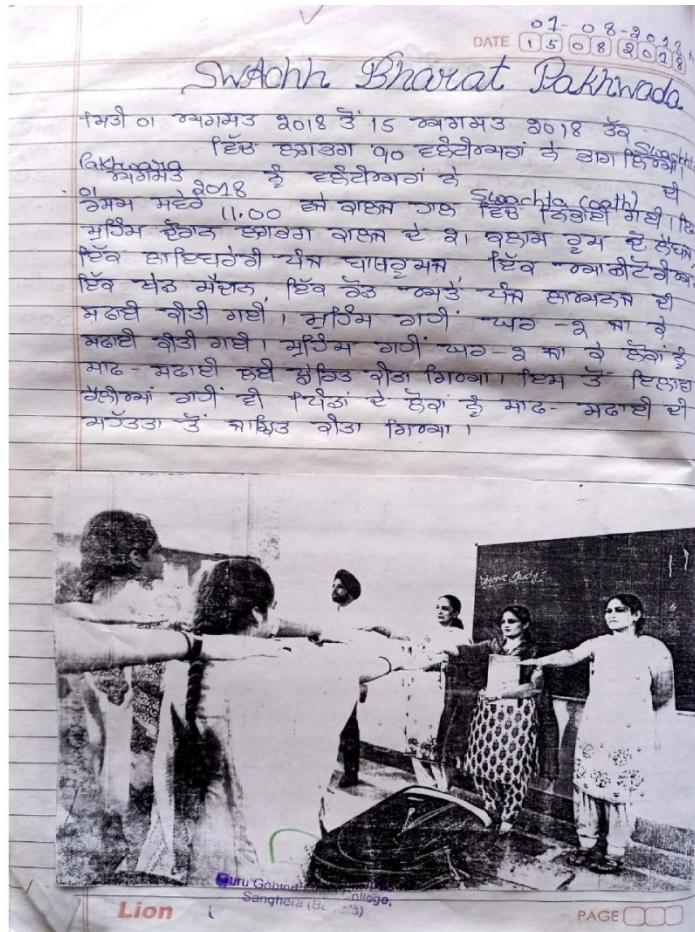 01-08-2018
DATE 15 08 2018
Swachh Bharat Pakhwada
ਮਿਤੀ 01 ਅਗਸਤ 2018 ਤੋਂ 15 ਅਗਸਤ 2018 ਤੱਕ Swachta
Pakhwara ਵਿੱਚ ਲਗਭਗ 90 ਵਲੰਟੀਅਰਾਂ ਨੇ ਭਾਗ ਲਿਆ।
01 ਅਗਸਤ 2018 ਨੂੰ ਵਲੰਟੀਅਰਾਂ ਨੇ Swachta (oath) ਦੀ
ਰਸਮ ਸਵੇਰੇ 11.00 ਵਜੇ ਕਾਲਜ ਹਾਲ ਵਿੱਚ ਨਿਭਾਈ ਗਈ।
ਮੁਹਿੰਮ ਦੌਰਾਨ ਲਗਭਗ ਕਾਲਜ ਦੇ ਕਲਾਸ ਰੂਮ
ਇੱਕ ਲਾਇਬਰੇਰੀ ਪੰਜ ਬਾਥਰੂਮਜ਼, ਇੱਕ
ਇੱਕ ਖੇਡ ਮੈਦਾਨ, ਇੱਕ ਰੋਡ ਅਤੇ ਪੰਜ ਲਾਅਨਜ਼ ਦੀ
ਸਫਾਈ ਕੀਤੀ ਗਈ। ਮੁਹਿੰਮ ਰਾਹੀਂ ਘਰ-2 ਜਾ ਕੇ
ਸਫਾਈ ਕੀਤੀ ਗਈ। ਮੁਹਿੰਮ ਰਾਹੀਂ ਘਰ-2 ਜਾ ਕੇ ਲੋਕਾਂ ਨੂੰ
ਸਾਫ-ਸਫਾਈ ਲਈ ਪ੍ਰੇਰਿਤ ਕੀਤਾ ਗਿਆ। ਇਸ ਤੋਂ ਇਲਾਵਾ
ਰੈਲੀਆਂ ਰਾਹੀਂ ਵੀ ਪਿੰਡਾਂ ਦੇ ਲੋਕਾਂ ਨੂੰ ਸਾਫ-ਸਫਾਈ ਦੀ
ਮਹੱਤਤਾ ਤੋਂ ਜਾਣਿਤ ਕੀਤਾ ਗਿਆ।
Guru Gobind College,
Sanghera
Lion
PAGE